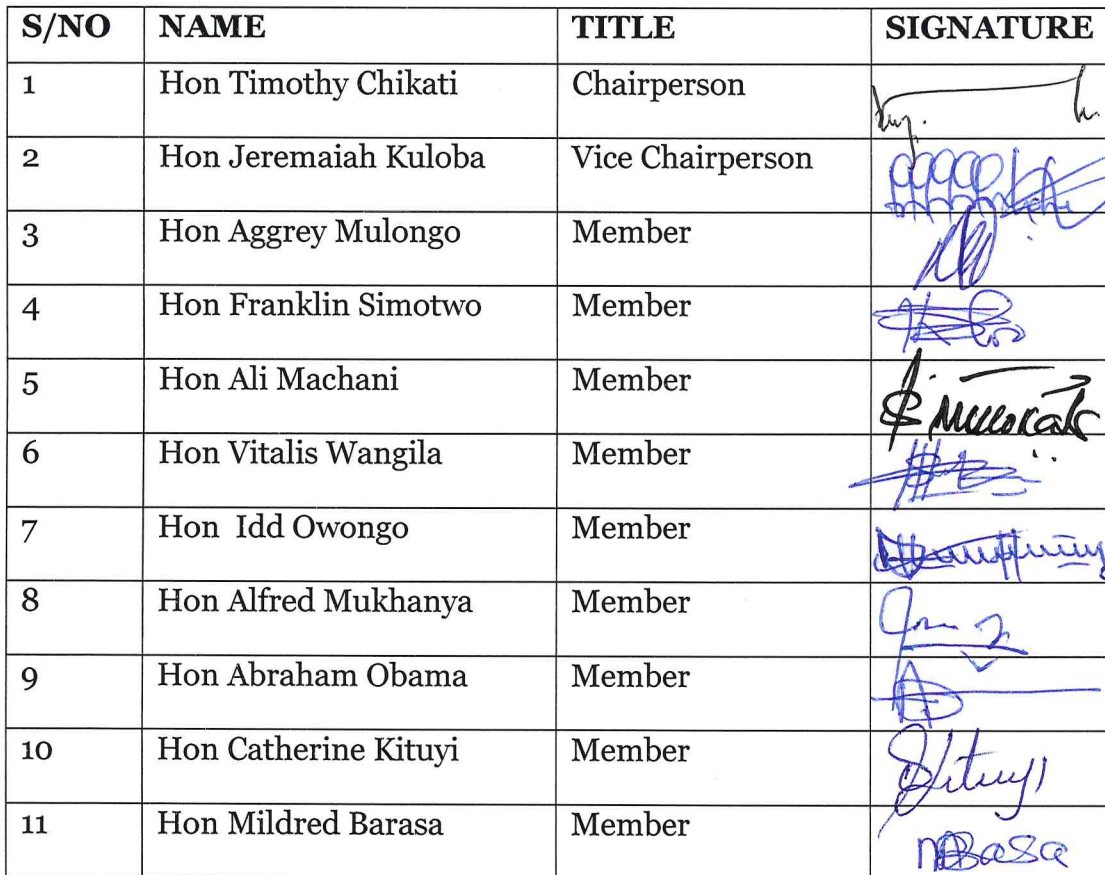 S/NO NAME TITLE SIGNATURE
1 Hon Timothy Chikati Chairperson
2 Hon Jeremaiah Kuloba Vice Chairperson
3 Hon Aggrey Mulongo Member
4 Hon Franklin Simotwo Member
5 Hon Ali Machani Member
6 Hon Vitalis Wangila Member
7 Hon Idd Owongo Member
8 Hon Alfred Mukhanya Member
9 Hon Abraham Obama Member
10 Hon Catherine Kituyi Member
11 Hon Mildred Barasa Member